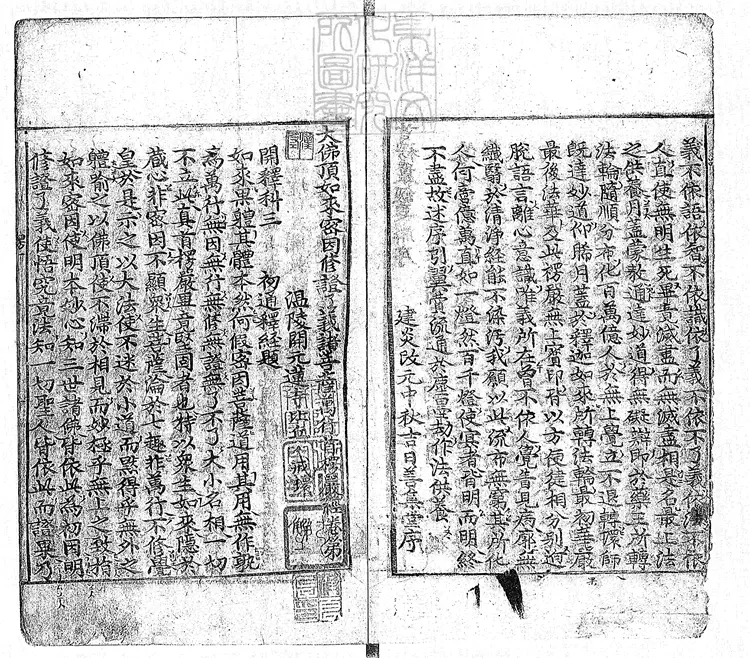 義不依語依智不依識依了義不依不了義依法不依
人直使無明生死畢竟滅盡而無滅盡相是名最上法
之供養月盖蒙教通達妙道得無礙辯即於藥王所轉
法輪隨順分布化百萬億人於無上覺立不退轉環師
既達妙道仰勝月盖於釋迦如來所轉法輪最初華嚴
最後法華及此楞嚴無上寶印有以方便徒相分別迥
脫語言離心意識唯義所在曾不依人覺普見病廓無
纖翳於清淨經能不條污我願以此流布無窮其所化
人何啻億萬真如一燈然百千燈使冥者皆明而明終
不盡故述序引翼贊流通於塵勞勸作法供養
建炎改元中秋吉日善集堂序
大佛頂如來密因修證了義諸菩薩萬行首楞嚴經卷第
溫陵開元蓮寺比丘戒環解
開釋科三 初通釋經題
如來果體其體本然何假密因菩薩道用其用無作孰
為萬行無因無行無修無證無了不了大小名相一切
不立此真首楞嚴畢竟堅固者也特以眾生如來隱於
藏心非密因不顯眾生菩薩淪於七趣非萬行不修覺
皇於是示之以大法使不迷於小道而默得乎無外之
體喻之以佛頂使不滯於相見而妙極乎無上之致指
如來密因使明本妙心知三世諸佛皆依此為初因明
修證了義使悟究竟法知一切聖人皆依此而證畢了